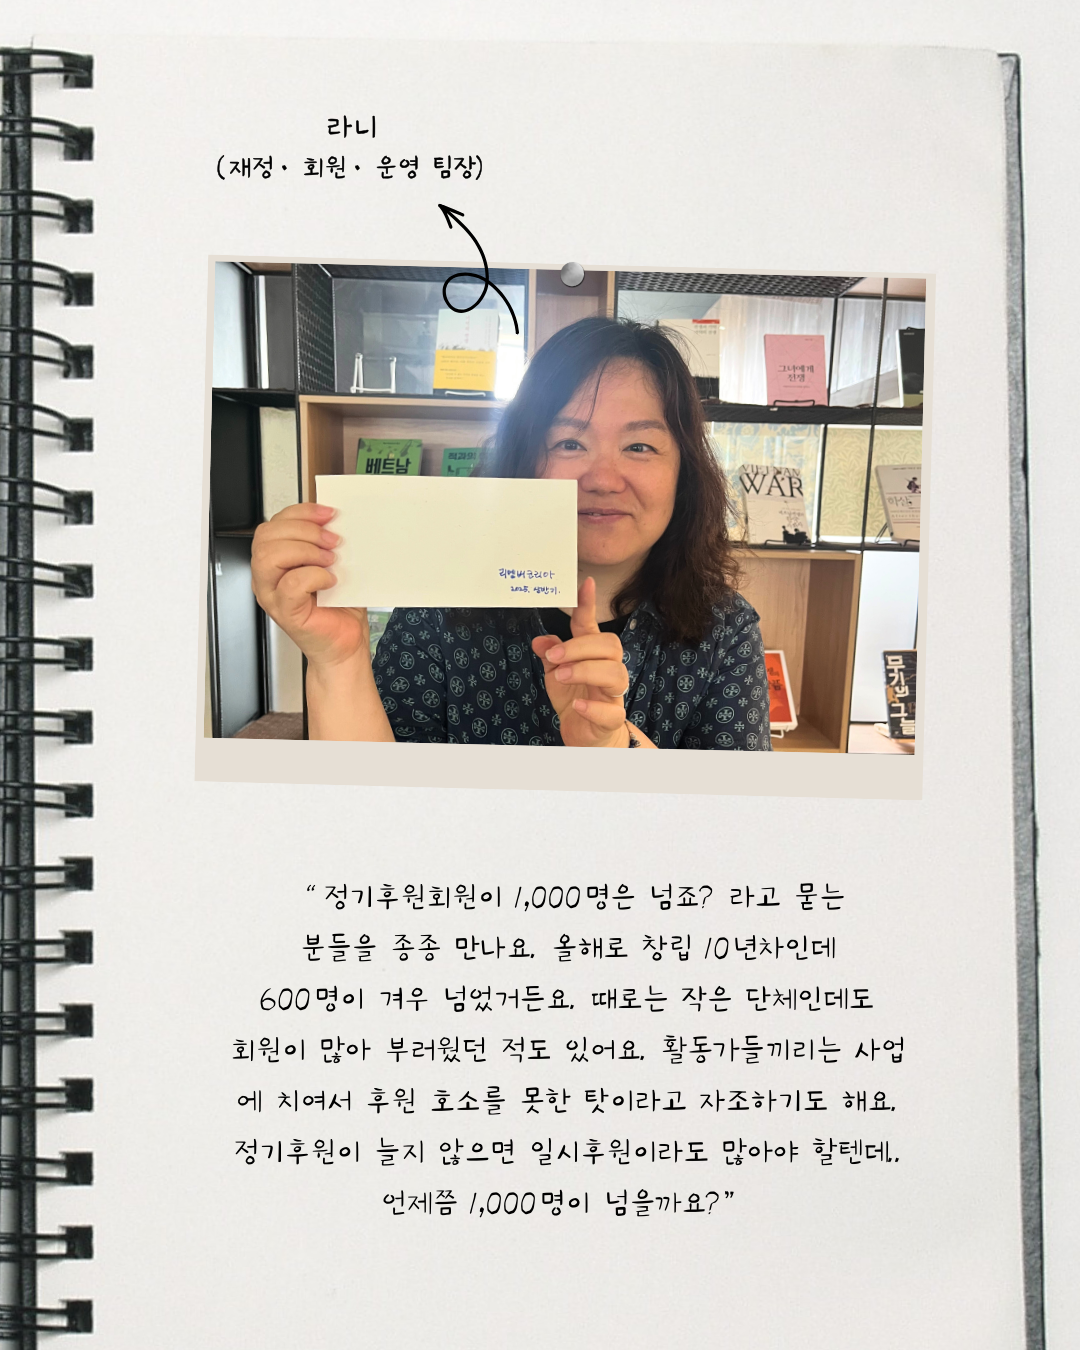 라니
(재정· 회원· 운영 팀장)
그녀에게
전쟁
베트남
VIETNAM
WAR
리멤버코리아
2025. 상반기.
무기의 그늘
“ 정기후원회원이 1,000명은 넘죠? 라고 묻는
분들을 종종 만나요. 올해로 창립 10년차인데
600명이 겨우 넘었거든요. 때로는 작은 단체인데도
회원이 많아 부러웠던 적도 있어요. 활동가들끼리는 사업
에 치여서 후원 호소를 못한 탓이라고 자조하기도 해요.
정기후원이 늘지 않으면 일시후원이라도 많아야 할텐데..
언제쯤 1,000명이 넘을까요?”